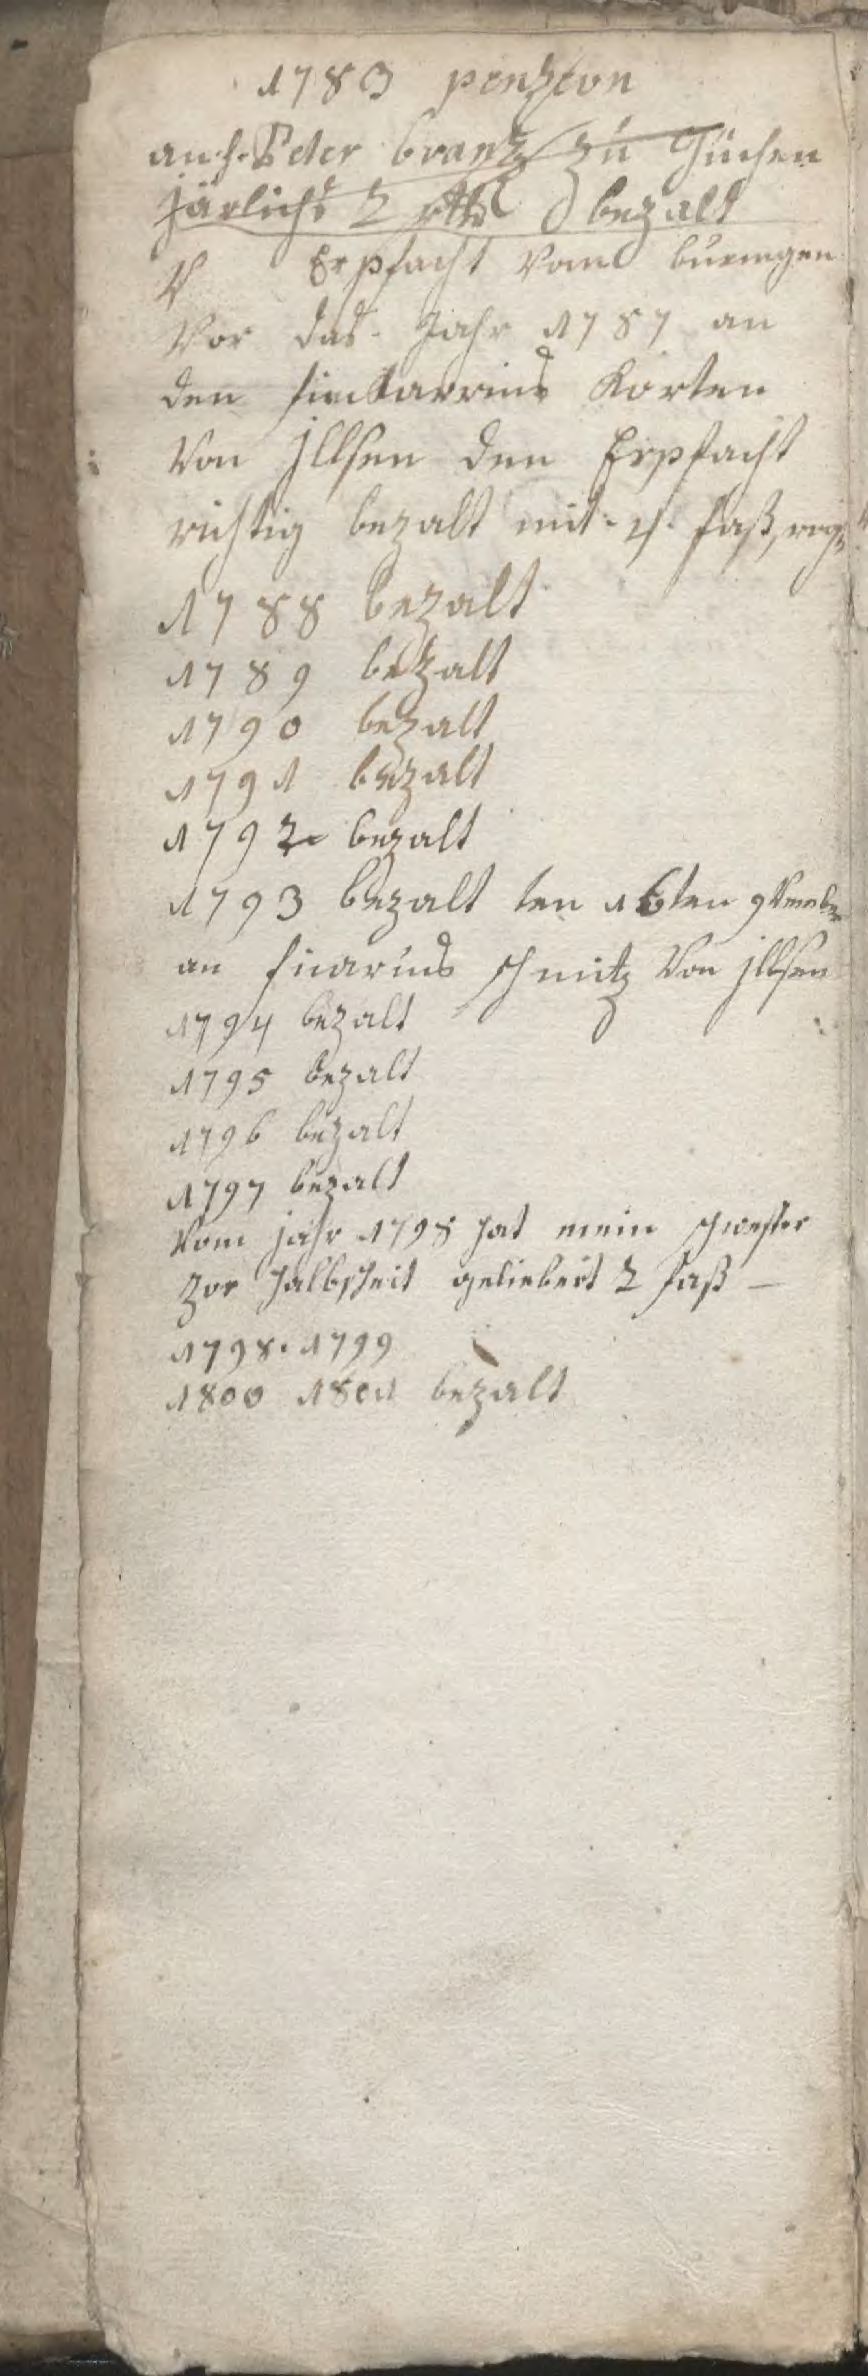 1783 penzion
an h. Peter brantz zu Jüchen
Järlichs 2 rthl bezalt
Erpfacht vom
vor das Jahr 1787 an
den Korten
von jllsen den Erpfacht
richtig bezalt mit 4 faß
1788 bezalt
1789 bezalt
1790 bezalt
1791 bezalt
1792 bezalt
1793 bezalt ten 16ten 9vember
an ficarius schmitz von jllsen
1794 bezalt
1795 bezalt
1796 bezalt
1797 bezalt
vom jahr 1798 hat mein schwester
zor halbscheit geliebert 2 faß —
1798. 1799
1800 1801 bezalt